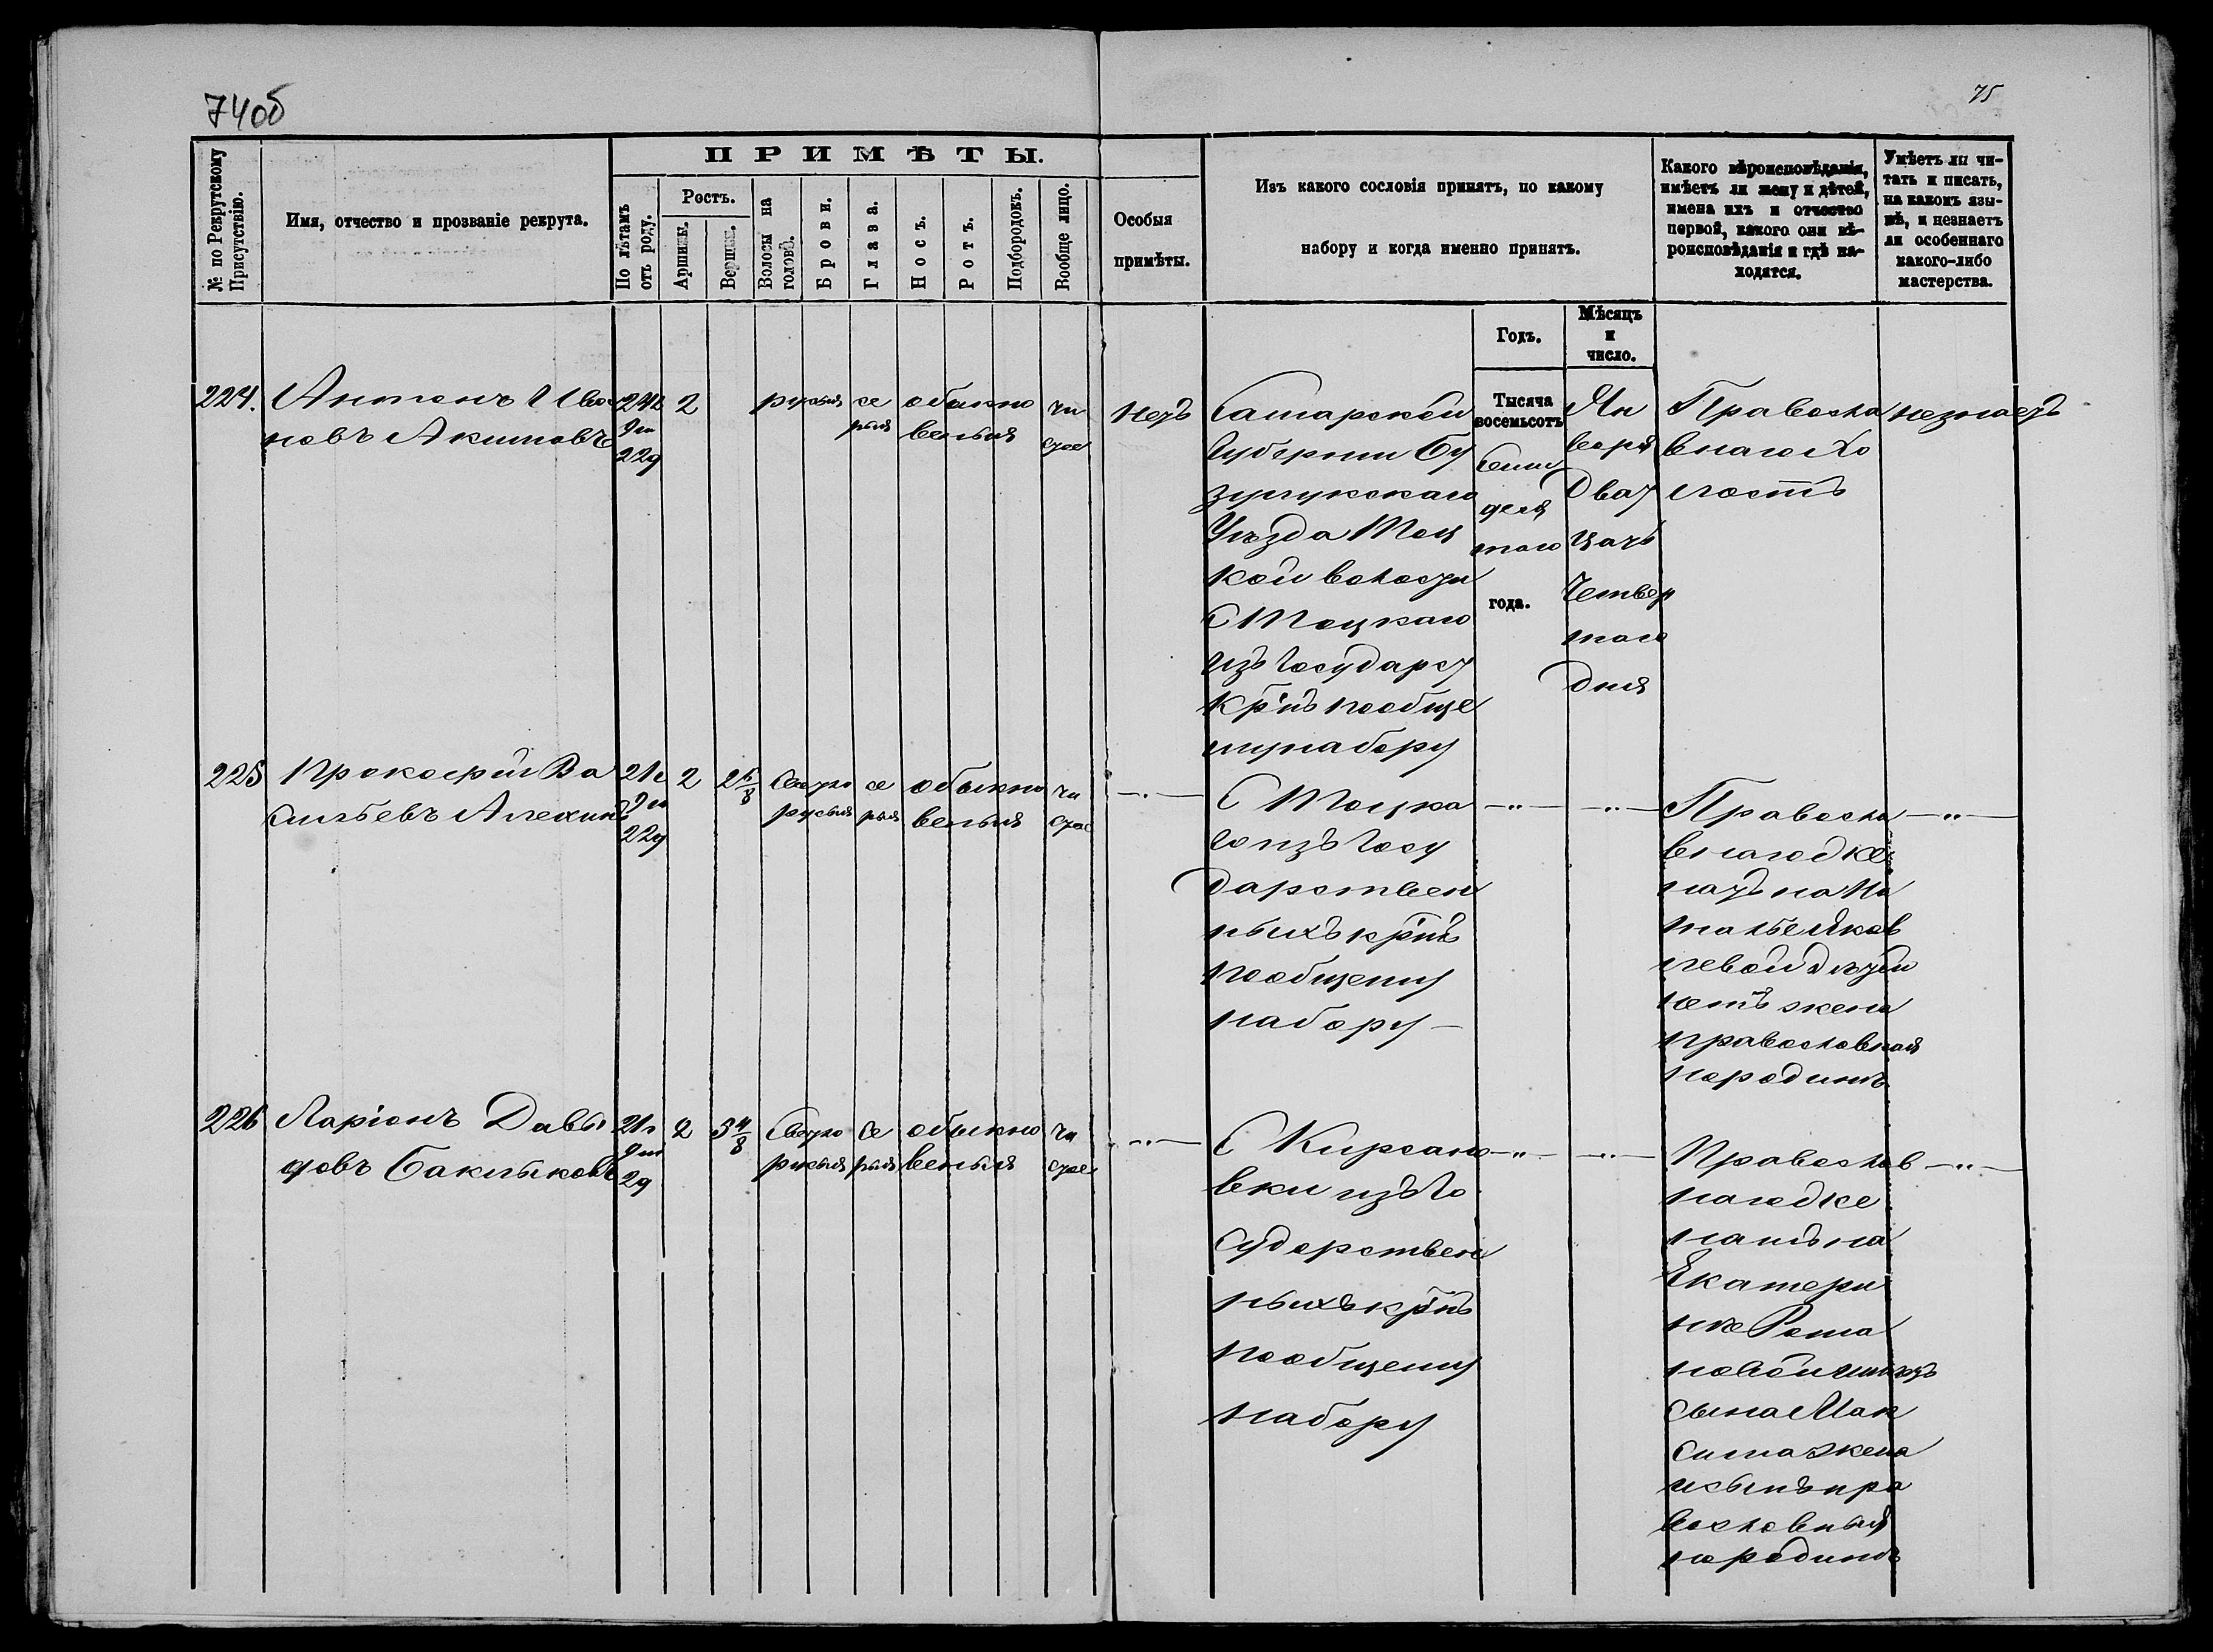 74об
75
№ по Рекрутскому Присутствію.
Имя, отчество и прозваніе рекрута.
ПРИМѢТЫ.
По лѣтамъ отъ роду.
Ростъ.
Аршины.
Вершки.
Волосы на головѣ.
Брови.
Глаза.
Носъ.
Ротъ.
Подбородокъ.
Вообще лицо.
Особыя
примѣты.
Изъ какого сословія принятъ, по какому
набору и когда именно принятъ.
Какого вѣроисповѣданія,
имѣетъ ли жену и дѣтей,
имена ихъ и отчество
первой, какого они вѣ-
роисповѣданія и гдѣ на-
ходятся.
Умѣетъ ли чи-
тать и писать,
на какомъ язы-
кѣ, и незнаетъ
ли особеннаго
какого-либо
мастерства.
Годъ.
Мѣсяцъ
и
число.
224.
Антонъ Ива
новъ Акимовъ
2
русыя
се
рыя
обыкно
венныя
чи
стое
нетъ
Самарской
Губерніи Бу
зулукскаго
Уѣзда Тоц
кой волости
С Тоцкаго
изъ Государст
кр̃нъ пообще
му набору
Тысяча
восемьсотъ
Семи
деся
таго
года.
Ян
варя
Двад
цать
Четвер
таго
дня
Правосла
внаго Хо
лостъ
незнаетъ
225
Прокофій Ва
сильевъ Алехинъ
2
2 6/8
Светло
русыя
се
рыя
обыкно
венныя
чи
стое
С Тоцка
го изъ Госу
дарствен
ныхъ кр̃нъ
пообщему
набору
Правосла
внаго же
натъ на На
тальѣ Яков
левой дѣтей
нетъ жена
православная
народинѣ
226
Ларіонъ Давы
довъ Баклыковъ
2
3 4/8
Светло
русыя
се
рыя
обыкно
венныя
чи
стое
С Кирсано
вки изъ Го
сударствен
ныхъ кр̃нъ
пообщему
набору
Правослов
наго же
натъ на
Екатери
не Рома
новой имеетъ
сына Мак
сима жена
исынъ пра
вословный
народинѣ